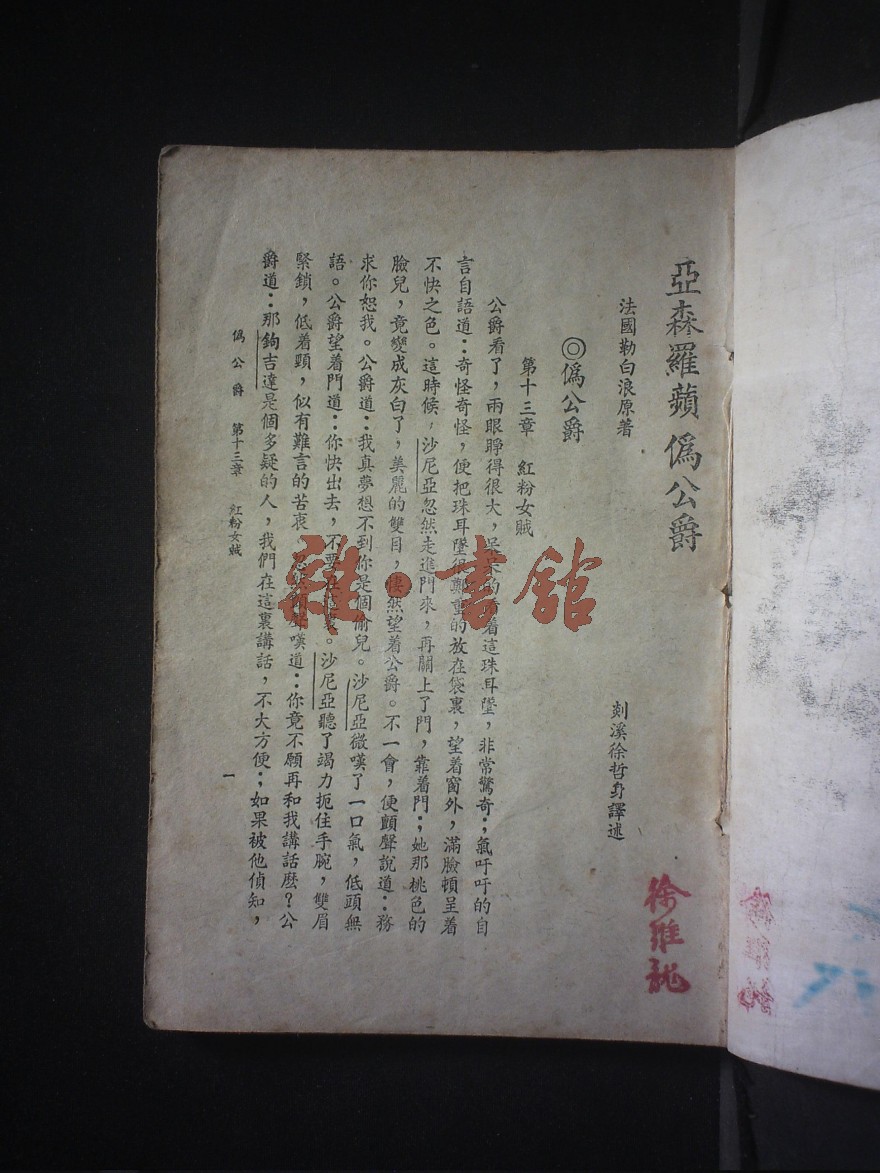 亞森羅蘋 僞公爵
法國勒白浪原著
剡溪徐哲身譯述
◎僞公爵
第十三章 紅粉女賊
公爵看了，兩眼睜得很大，呆呆的看着這珠耳墜，非常驚奇；氣吁吁的自
言自語道：奇怪奇怪，便把珠耳墜很鄭重的放在袋裏，望着窗外，滿臉頓呈着
不快之色。這時候，沙尼亞忽然走進門來，再關上了門，靠着門；她那桃色的
臉兒，竟變成灰白了，美麗的雙目，悽然望着公爵。不一會，便顫聲說道：務
求你恕我。公爵道：我真夢想不到你是個偷兒。沙尼亞微嘆了一口氣，低頭無
語。公爵望着門道：你快出去，不要在這裏。沙尼亞聽了竭力扼住手腕，雙眉
緊鎖，低着頸，似有難言的苦衷 嘆道：你竟不願再和我講話麽？公
爵道：那鉤吉達是個多疑的人，我們在這裏講話，不大方便；如果被他偵知，
僞公爵 第十三章 紅粉女賊
一
徐維龍
雜·書館